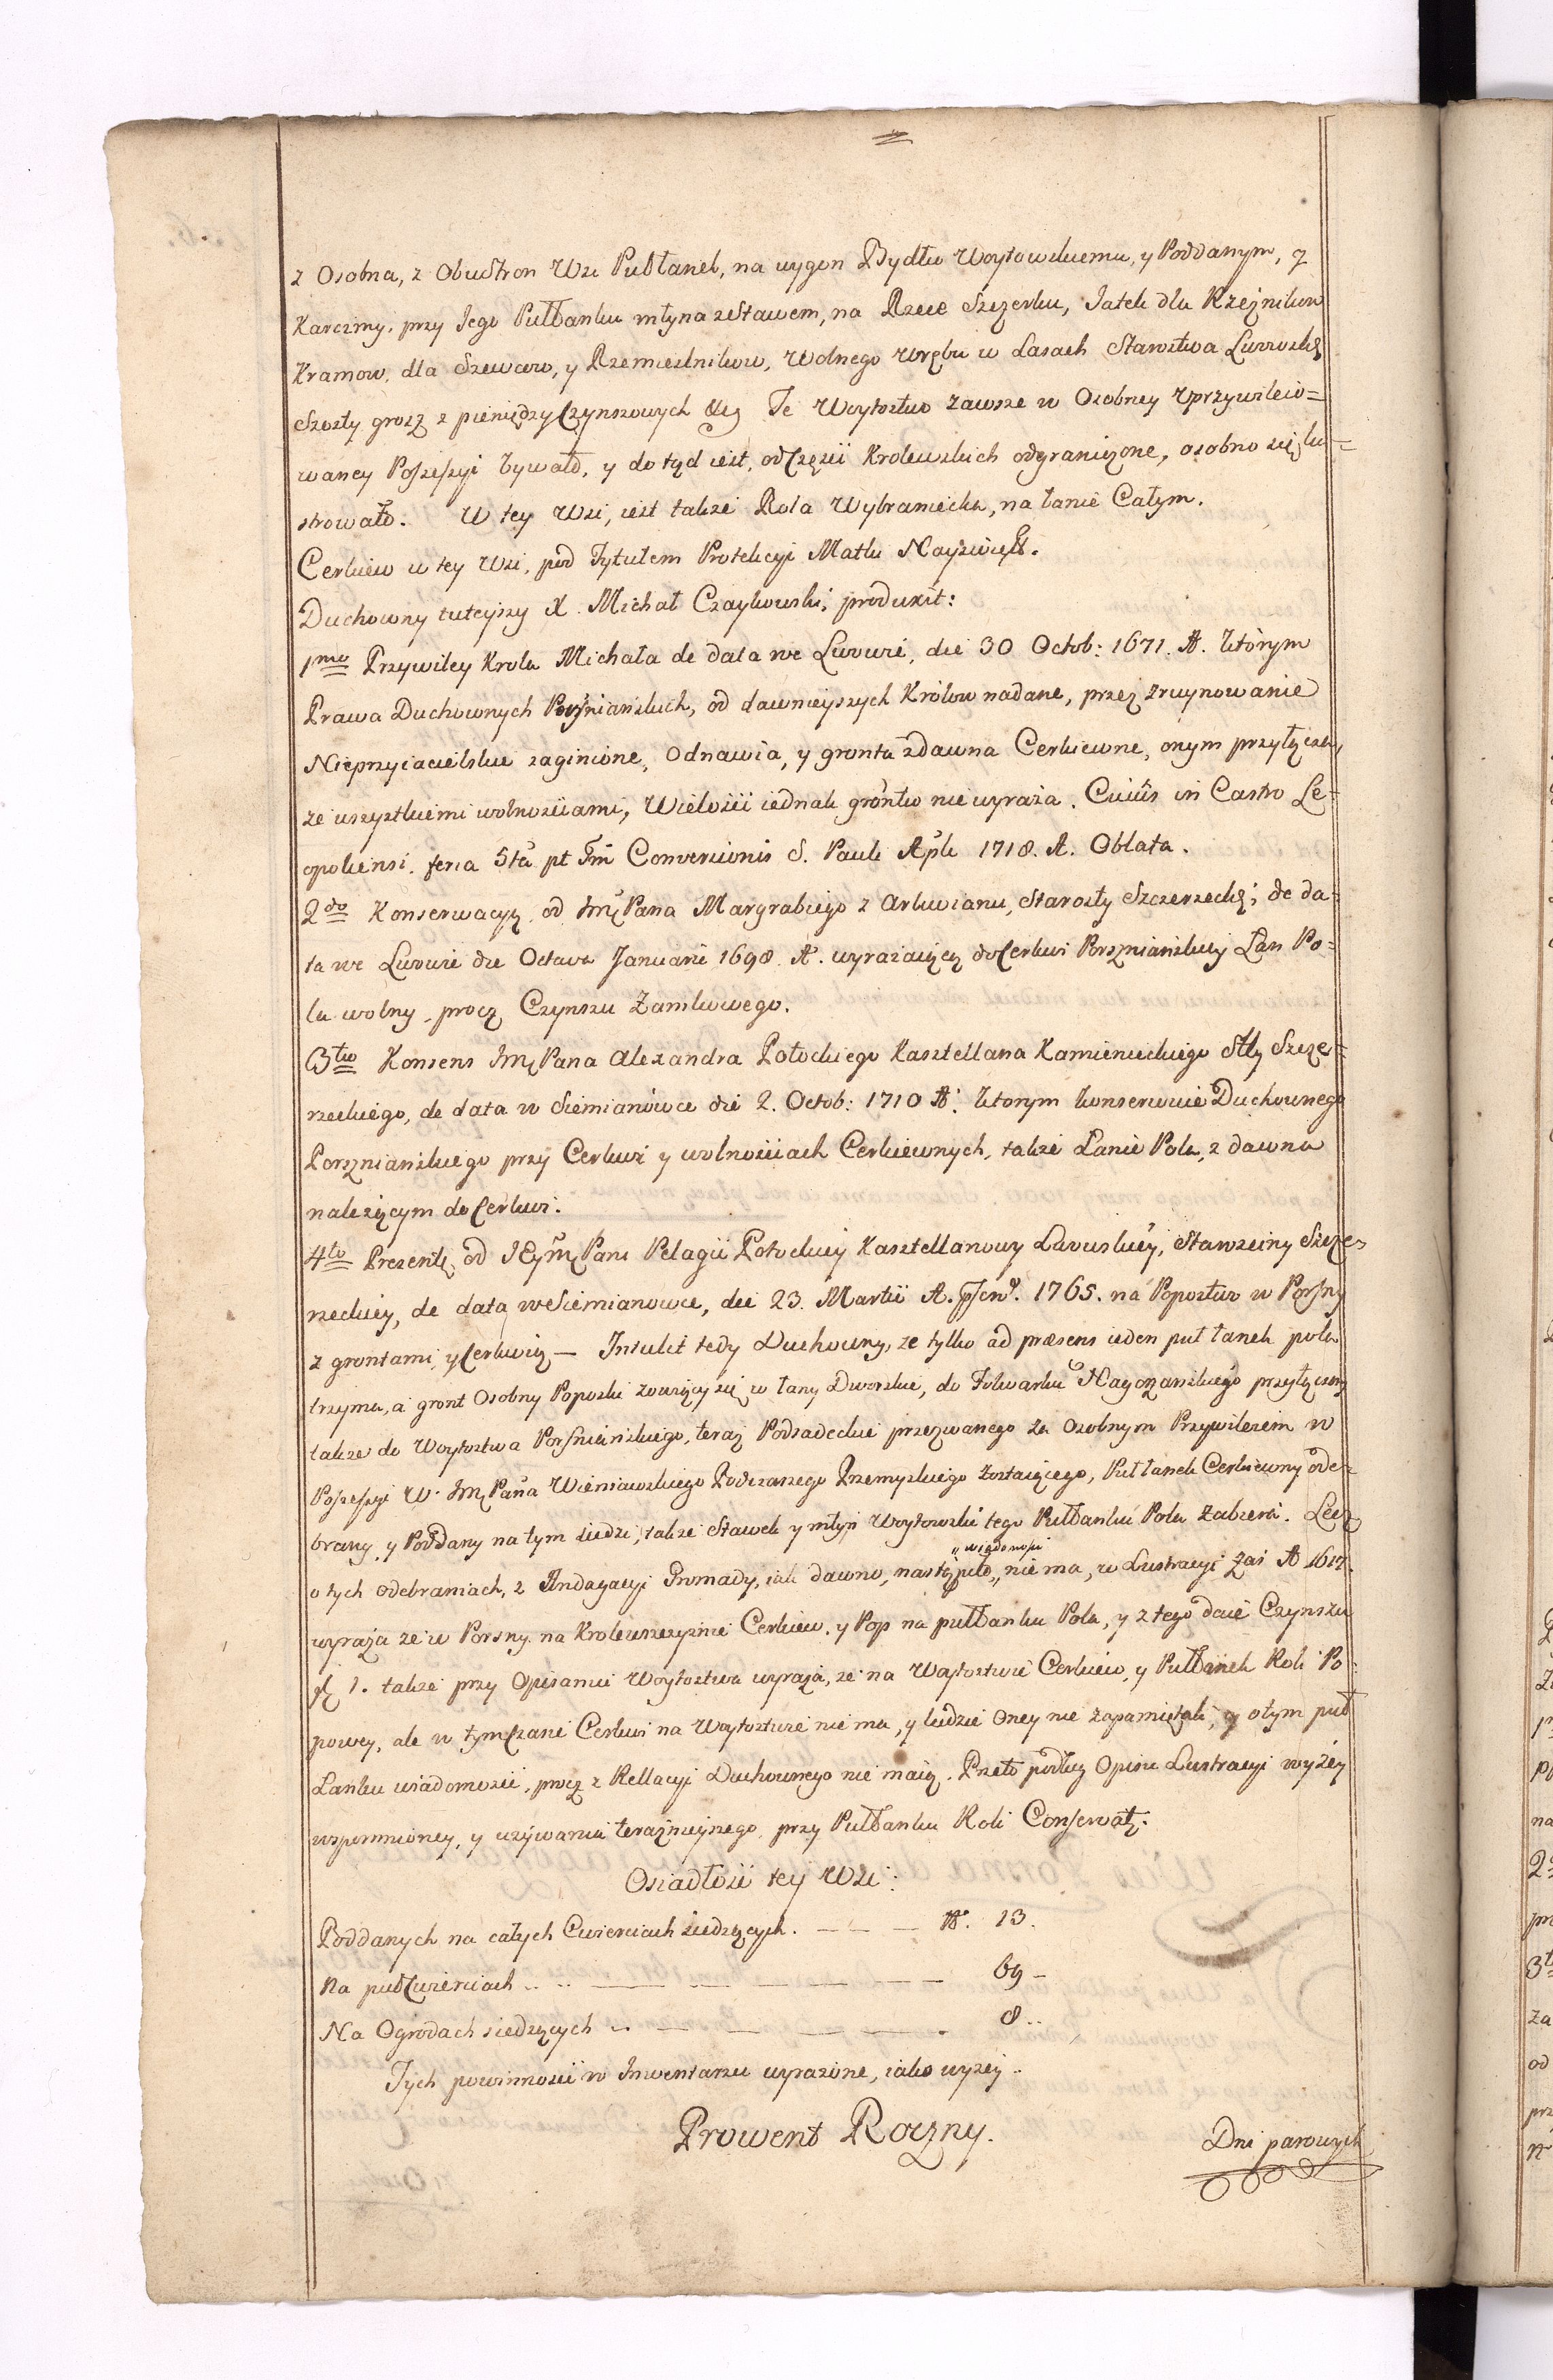 z Osobna, z Obustron Wsi Pułłanek, na wygon Bydłu Woytowskiemu, y Poddanym, z
Karczmy, przy Jego Pułłanku młyna zestawem, na Rzece Szczerku, Jatek dla Rzeżnikow
Kramow, dla Szewcow, y Rzemieslnikow, Wolnego Wrębu w Lasach Starostwa Lwowskę
Szosty grosz z pieniędzy Czynszowych &c. Te Woytostwo zawsze w Osobney Uprzywileio=
waney Possessyi bywało, y do tąd iest, od Części Krolewskich odgraniczone, osobno się lu=
strowało. W tey Wsi, iest także Rola Wybraniecka, na łanie Całym.
Cerkiew w tey Wsi, pod Tytułem Protekcyi Matki Nayświę.
Duchowny tuteyszy X. Michał Czaykowski, produxit:
1mo Przywiley Krola Michała de data we Lwowie, die 30 Octob: 1671. A. którym
Prawa Duchownych Porszniańskich, od dawnieyszych Królow nadane, przez zruynowanie
Nieprzyiacielskie zaginione, Odnawia, y gronta zdawna Cerkiewne, onym przyłącza,
ze wszystkiemi wolnościami, Wielości iednak gróntu nie wyraża. Cuius in Castro Le=
opoliensi. feria 5ta pt Fm Conversionis S. Pauli Apli 1718. A. Oblata.
2do Konserwacyą, od Jmę Pana Margrabiego z Arkwianu, Starosty Szczerzeckę; de da=
ta we Lwowie die Octava Januarii 1698. A. wyrażaiącą do Cerkwi Porszniańskiey Łan Po=
la wolny, procz Czynszu Zamkowego.
3tio Konsens Jmę Pana Alexandra Potockiego Kasztellana Kamienieckiego Stty Szcze=
rzeckiego, de data w Siemianówce die 2. Octob: 1710 A. ktorym konserwuie Duchownego
Porszniańskiego przy Cerkwi y wolnościach Cerkiewnych, także Łanie Pola, z dawna
należącym do Cerkwi.
4to Prezentę, od JEymę Pani Pelagii Potockiey Kasztellanowy Lwowskiey, Starosciny Szcze=
rzeckiey, de data we Siemianowce, die 23. Martii A. 1765. na Popostwo w Porsny
z grontami, y Cerkwią — Intulit tedy Duchowny, że tylko ad præsens ieden puł łanek pola
trzyma, a gront Osobny Poposki zowiący się w łany Dworskie, do Folwarku Nagorzańskiego przyłączony
także do Woytostwa Porsniańskiego, teraz Podsadeckie przezwanego za Osobnym Przywileiem w
Possessyi W. Jmę Pana Wieniawskiego Podczaszego Przemyskiego zostaiącego, Pułłanek Cerkiewny ode=
brany, y Poddany na tym siedzi, także Stawek y młyn Woytowski tego Pułłanku Pola Zabiera. Lecz
o tych odebraniach, z Indagacyi Gromady, iak dawno, nastąpiło „wiadomości nie ma, w Lustracyi zaś A 1617.
wyraża że w Porsny na Krolewszczyznie Cerkiew, y Pop na pułłanku Pola, y z tego daie Czynszu
fl 1. także przy Opisaniu Woytostwa wyraża, że na Woytostwie Cerkiew, y Pułłanek Roli Po=
powey, ale w tym Czasie Cerkwi na Woytostwie nie ma, y ludzie Oney nie zapamiętali, y o tym puł
Łanku wiadomości, procz z Rellacyi Duchownego nie maią. Przeto podług Opisu Lustracyi wyżey
wspomnioney, y używania teraznieyszego przy Pułłanku Roli Conservat.
Osiadłość tey Wsi:
Poddanych na całych Cwierciach siedzących. — — — No. 13.
Na puł Cwierciach .. .. — — — — — — 69 –
Na Ogrodach siedzących .. — — — — — 8 ..
Tych powinności w Inwentarzu wyrażone, iako wyżey ..
Prowent Roczny.
Dni parowych